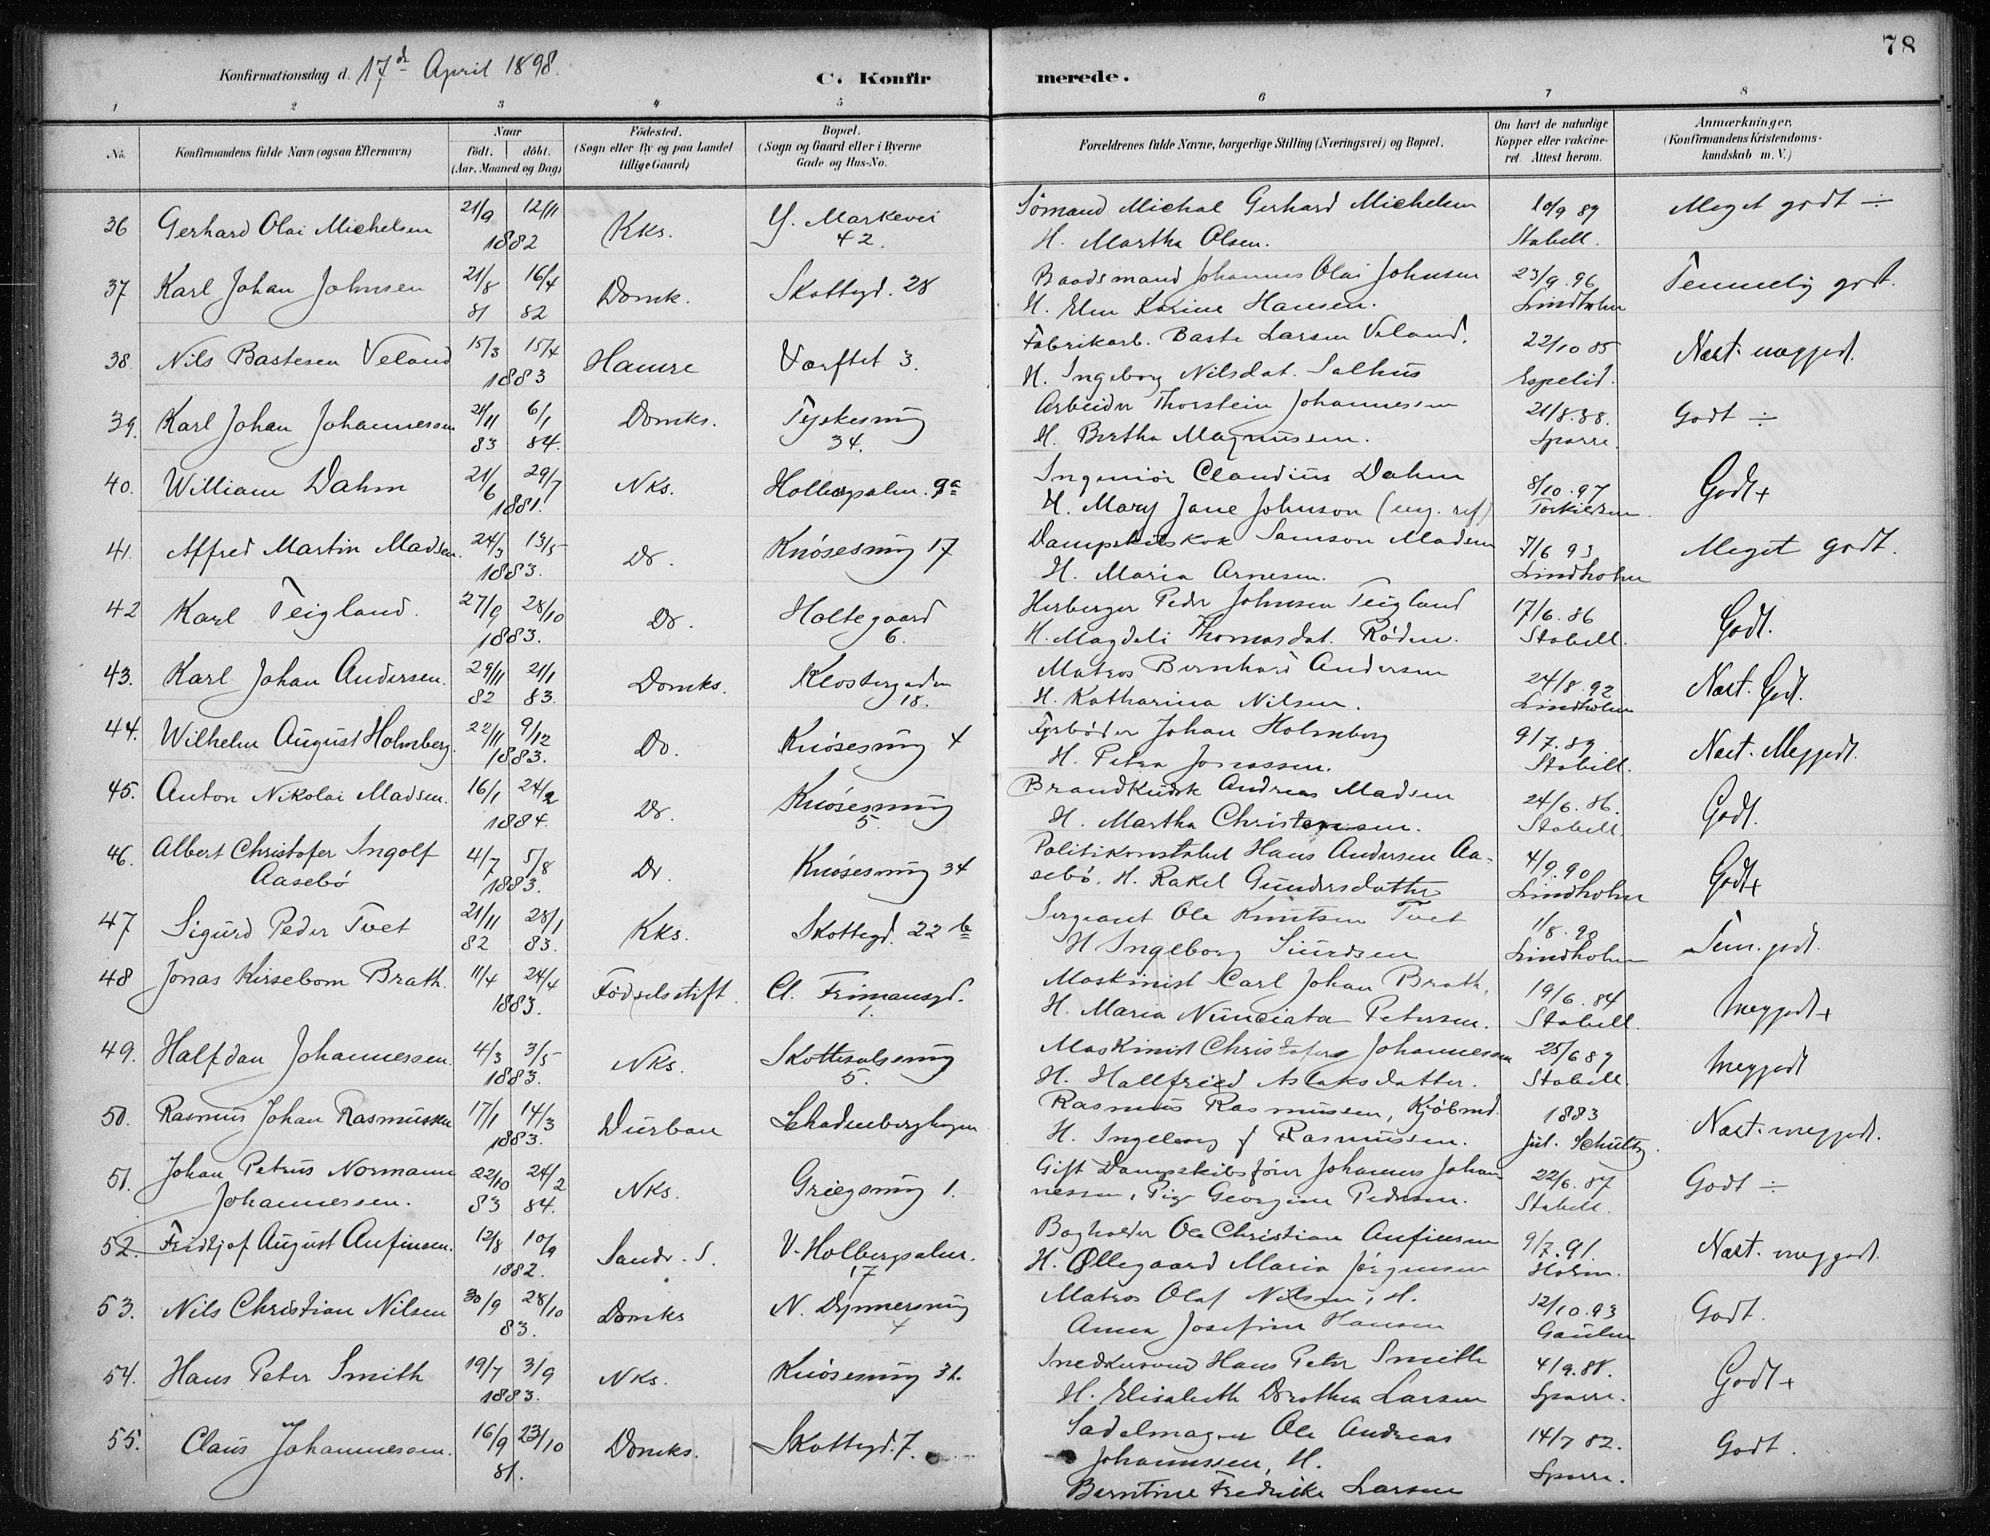 78
Konfirmationsdag d. 17de April 1898.
C. Konfirmerede.
1 2 3 4 5 6 7 8
No.
Konfirmandens fulde Navn (ogsaa Efternavn)
Naar
født. døbt.
(Aar, Maaned og Dag)
Fødested.
(Sogn eller By og paa Landet
tillige Gaard)
Bopæl.
(Sogn og Gaard eller i Byerne
Gade og Hus-No.
Forældrenes fulde Navne, borgerlige Stilling (Næringsvei) og Bopæl.
Om havt de naturlige
Kopper eller vakcine-
ret. Attest herom.
Anmærkninger.
(Konfirmandens Kristendoms-
kundskab m. V.)
36 Gerhard Olai Michelsen 21/9 12/11 1882 Kks. Y. Markevei 42. Sömand Michal Gerhard Michelsen
H. Martha Olsen. 10/9 89 Stabell. Meget godt ÷
37 Karl Johan Johnsen 21/8 81 16/4 82 Domk. Skottegd. 28 Baadsmand Johannes Olai Johnsen
H. Elen Karine Hansen. 23/9.96 Lindholm Temmelig godt.
38. Nils Bastesen Veland 15/3 15/4 1883 Hamre Værftet 3. Fabrikarb. Baste Larsen Veland.
H. Ingeborg Nilsdat. Salhus 22/10 85 Espelid. Næst. meggodt.
39. Karl Johan Johannessen 21/11 83 6/1 84. Domks. Tyskesmug 34. Arbeider Thorstein Johannessen
H. Bertha Magnussen. 21/8.88. Sparre. Godt ÷
40. William Dahm 21/6 29/7 1881. NKs. Holbergsalm. 9a Ingeniör Claudius Dahm
H. Mary Jane Johnson (eng. ref) 8/10.97 Torkildsen Godt+
41. Alfred Martin Madsen. 24/3 13/5 1883. Do. Knösesmug 17 Dampskibskok Samson Madsen
H. Maria Arnesen. 7/6 93 Lindholm Meget godt.
42 Karl Teigland. 27/9 28/10 1883. Do. Holtegaard 6. Herberger Peder Johnsen Teigland
H. Magdeli Thomasdat. Röden. 17/6.86 Stabell. Godt.
43. Karl Johan Andersen. 29/11 82 21/1 83. Domks. Klostergaden 18. Matros Bernhard Andersen
H. Katharina Nilsen. 24/8.92 Lindholm Næst. Godt.
44. Wilhelm August Holmberg. 22/11 9/12 1883. Do. Knösesmug 4 Fyrböder Johan Holmberg
H. Petra Jonassen. 9/7.89. Stabell. Næst. Meggodt.
45. Anton Nikolai Madsen. 16/1 24/2 1884. Do. Knösesmug 5. Brandkudsk Andreas Madsen
H. Martha Christensen. 24/6.86. Stabell. Godt.
46. Albert Christofer Ingolf
Aasebö 4/7 5/8 1883. Do. Knösesmug 34 Politikonstabel Hans Andersen Aa-
sebö. H. Rakel Gundersdatter 4/9.90 Lindholm Godt+
47 Sigurd Peder Tvet 21/11 82 28/1 83. Kks. Skottegd. 22 b Sergeant Ole Knutsen Tvet
H Ingeborg Siurdsen 1/8.90 Lindholm Tem. godt.
48 Jonas Kirsebom Brath. 11/4 24/4 1883. Födselsstift. Cl. Frimansgd. Maskinist Carl Johan Brath.
H. Maria Nunciata Petersen. 19/6.84 Stabell. Meggodt+
49. Halfdan Johannessen. 4/3 3/5 1883. NKs. Skottesalsmug 5. Maskinist Christofer Johannessen
H. Hallfried Aslaksdatter. 25/6 89 Stabell. Meggodt
50. Rasmus Johan Rasmussen 17/1 14/3 1883. Durban Rasmus Rasmussen, Kjöbmd.
H. Ingeborg f Rasmussen. 1883 Jul. Schultz Næst. meggodt.
51. Johan Petrus Normann
Johannessen. 22/10 83 24/2 84. NKs. Griegsmug 1. Gift Dampskibsförer Johannes Johan-
nessen, Pige Georgine Pedersen. 22/6.87 Stabell. Godt ÷
52. Fridtjof August Anfinsen. 12/8 10/9 1882. Sandv. S. V. Holbergsalm. 17 Bogholder Ole Christian Anfinsen
H. Øllegaard Maria Jörgensen 9/7.91. Holm. Næst. meggodt.
53. Nils Christian Nilsen 30/9 28/10 83. Domks N. Dynnersmug 4 Matros Olaf Nilsen, H.
Anna Josefine Hansen 12/10.93 Godt.
54. Hans Peter Smith 19/7 3/9 1883. NKs. Knösesmug 31. Snedkersvend Hans Peter Smith
H. Elisabeth Dorothea Larsen 4/9.88. Sparre. Godt+
55. Claus Johannessen. 16/9 23/10 81. Domks. Skottegd. 7. Sadelmager Ole Andreas
Johannessen, H.
Berntine Fredrikke Larsen 14/7 82. Sparre. Godt.